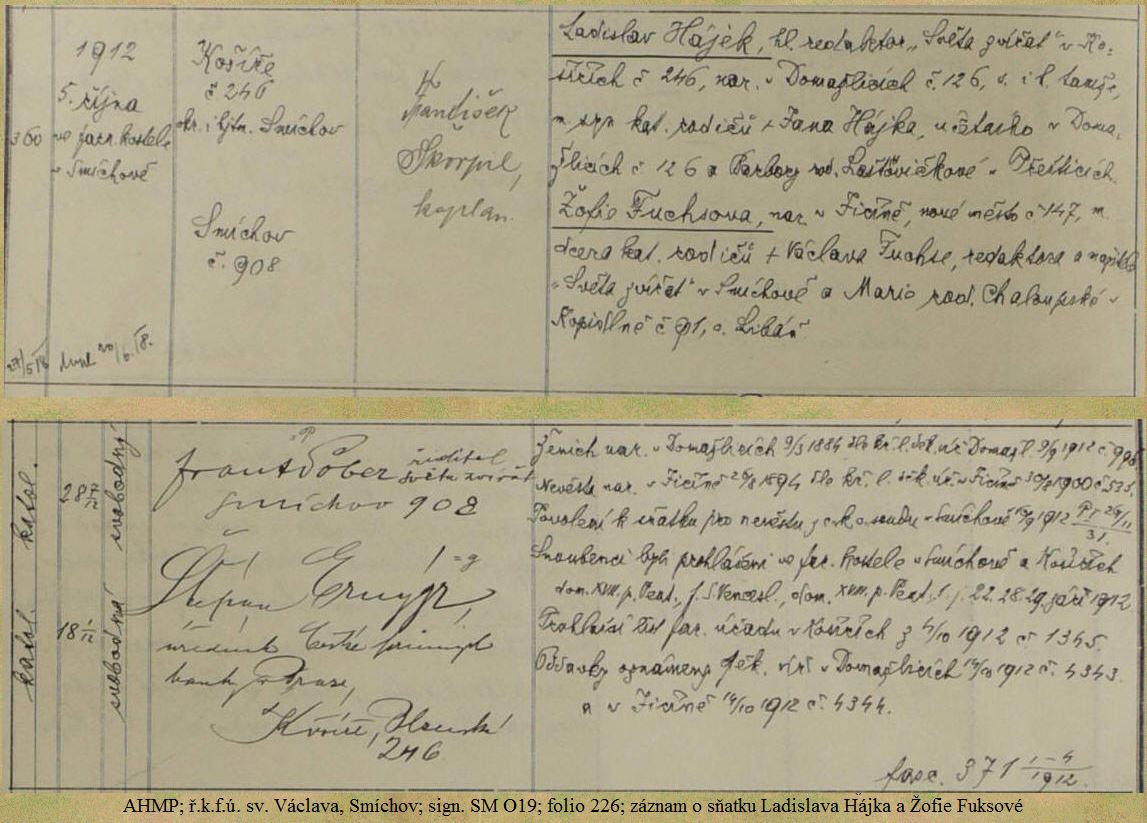 1912
5. října
ve far. kostele
v Smíchově
360
Košíře
č. 246
okr. i hjtm. Smíchov
Smíchov
č. 908
František
Škorpil,
kaplan.
Ladislav Hájek, hl. redaktor „Světa zvířat“ v Ko-
šířích č 246, nar. v Domažlicích č. 126, o. i h. tamže,
m. syn kat. rodičů + Jana Hájka, v Doma-
žlicích č 126 a Barbory rod. Laštovičkové v Přešticích.
Žofie Fuchsova, nar v Jičíně, nové město č 147, m.
dcera kat. rodičů + Václava Fuchse, redaktora a majitele
„Světa zvířat“ v Smíchově a Marie rod. Chaloupské v
Kopidlně č 91, o. Libáň
27/5 18 20/6. 18.
katol. katol.
28
18
svobodný
svobodná
Frant Pober ředitel
světa zvířat
Smíchov 908
Štěpán
úředník České průmysl
banky v Praze,
Košíře, Plzeňská
246
Ženich nar. v Domažlicích 9/3 1884 dle kř. l. děk. úř. Domažl. 9/9 1912 č. 998
Nevěsta nar. v Jičíně 28/8 1894 dle kř. l. děk. úř. v Jičíně 30/8 1900 č 535.
Povolení k sňatku pro nevěstu z c. k. o. soudu v Smíchově 19/9 1912
Snoubenci byli prohlášeni ve far. kostele v Smíchově a Košířích
dom. XVII. p. Pent., f. S. Vencesl., dom. XVIII. p. Pent., t. j. 22. 28. 29. září 1912.
Prohlašcí list far. úřadu v Košířích z 4/10 1912 č 1345.
Oddavky oznámeny děk. úř. v Domažlicích 14/10 1912 č. 4343.
a v Jičíně 14/10 1912 č. 4344.
fasc. 371 1-4/1912.
AHMP; ř.k.f.ú. sv. Václava, Smíchov; sign. SM O19; folio 226; záznam o sňatku Ladislava Hájka a Žofie Fuksové